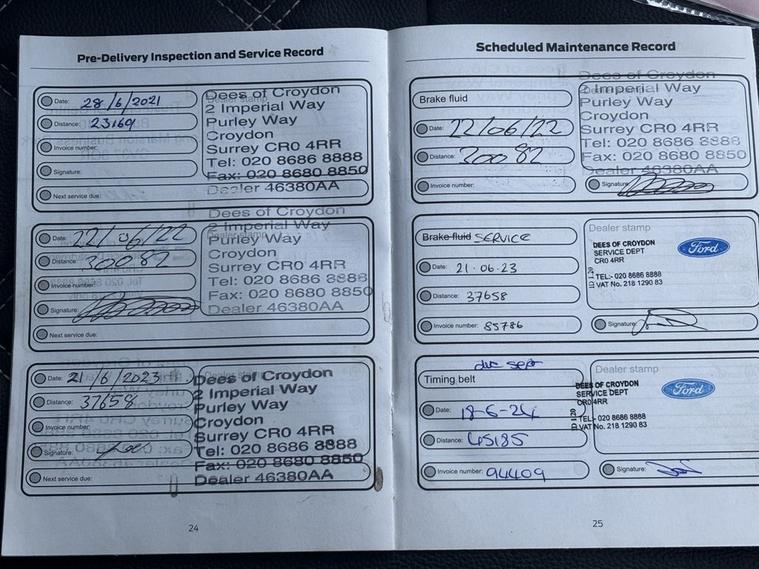 Pre-Delivery Inspection and Service Record
Date: 28/6/2021
Distance: 23169
Invoice number:
Signature:
Next service due:
Dealer stamp
Dees of Croydon
2 Imperial Way
Purley Way
Croydon
Surrey CR0 4RR
Tel: 020 8686 8888
Fax: 020 8680 8850
Dealer 46380AA
Date: 22/06/22
Distance: 30082
Invoice number:
Signature:
Next service due:
Dees of Croydon
2 Imperial Way
Purley Way
Croydon
Surrey CR0 4RR
Tel: 020 8686 8888
Fax: 020 8680 8850
Dealer 46380AA
Date: 21/6/2023
Distance: 37658
Invoice number:
Signature:
Next service due:
Dealer stamp
Dees of Croydon
2 Imperial Way
Purley Way
Croydon
Surrey CR0 4RR
Tel: 020 8686 8888
Fax: 020 8680 8850
Dealer 46380AA
24
Scheduled Maintenance Record
Brake fluid
Date: 22/06/22
Distance: 30082
Invoice number:
Dees of Croydon
2 Imperial Way
Purley Way
Croydon
Surrey CR0 4RR
Tel: 020 8686 8888
Fax: 020 8680 8850
Dealer 46380AA
Signature:
Brake fluid SERVICE
Date: 21.06.23
Distance: 37658
Invoice number: 85786
Dealer stamp
DEES OF CROYDON
SERVICE DEPT
CR0 4RR
TEL:- 020 8686 8888
VAT No. 218 1290 83
Ford
Signature:
due sept
Timing belt
Date: 18-6-24
Distance: 45185
Invoice number: 94409
Dealer stamp
DEES OF CROYDON
SERVICE DEPT
CR0 4RR
TEL:- 020 8686 8888
VAT No. 218 1290 83
Ford
Signature:
25